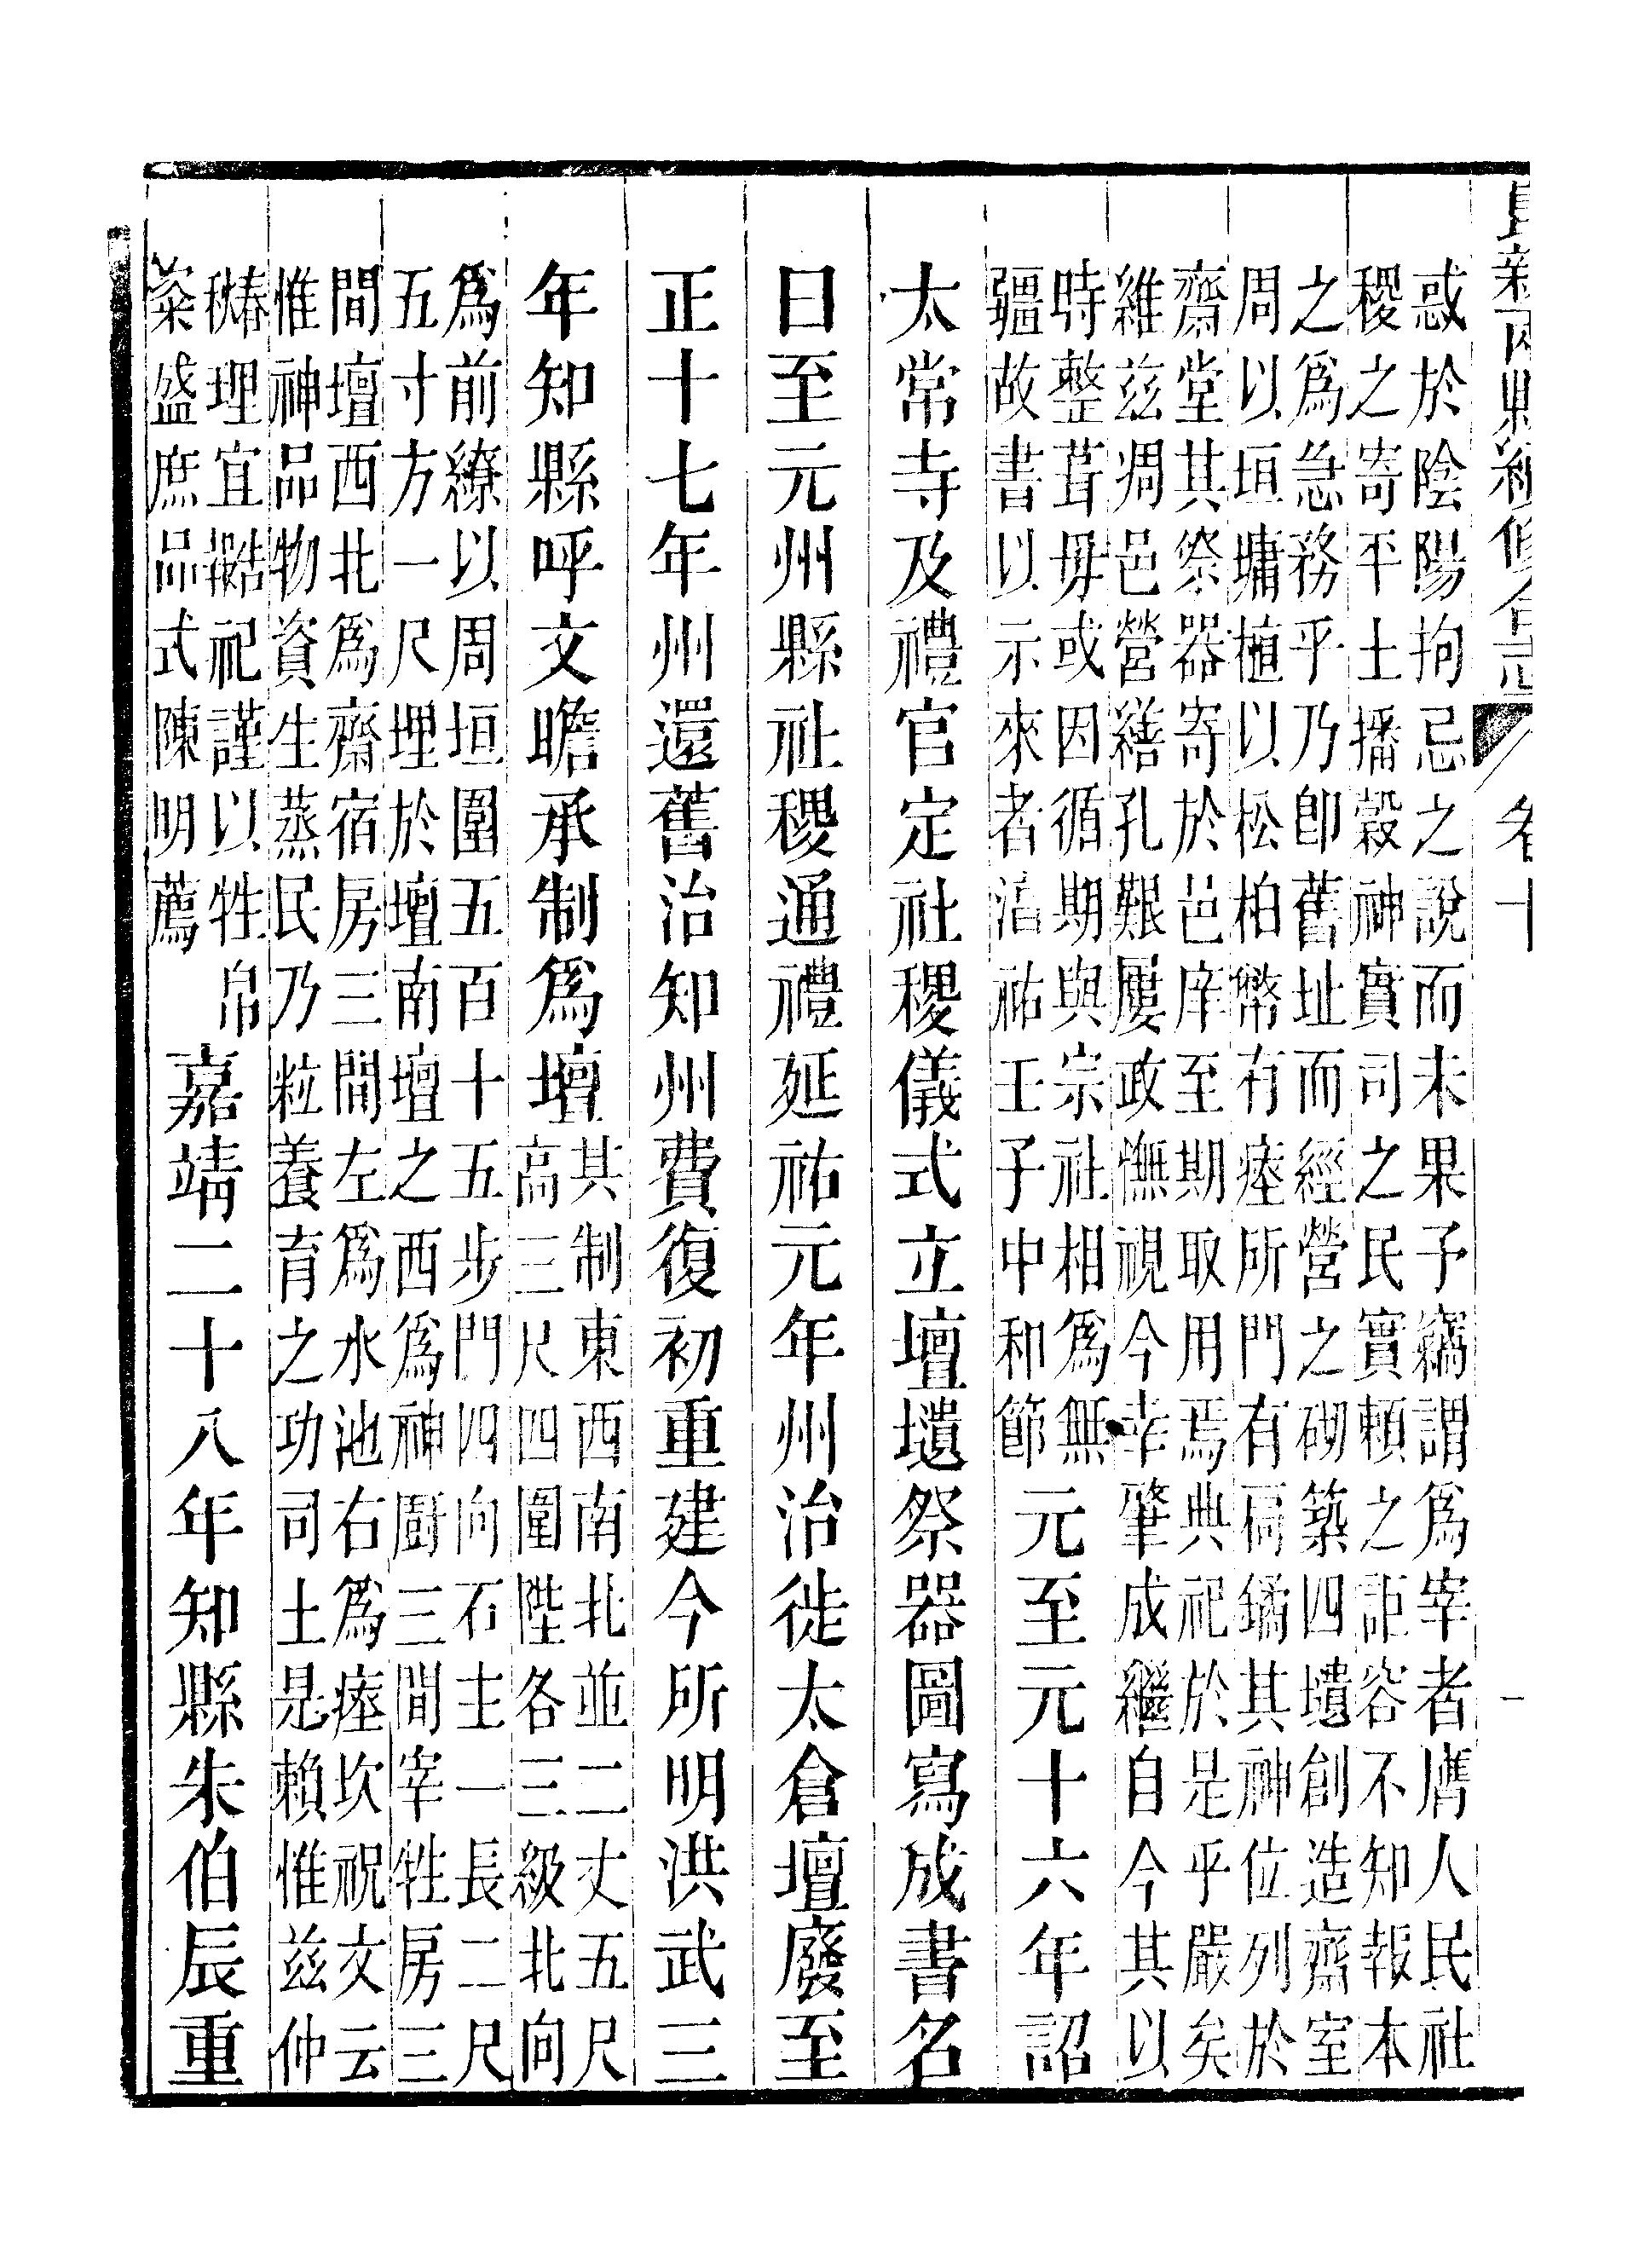 昆新兩縣續修合志 卷十 一
惑於陰陽拘忌之說而未果予竊謂爲宰者膺人民社
稷之寄平土播穀神實司之民實賴之詎容不知報本
之爲急務乎乃卽舊址而經營之砌築四壝創造齋室
周以垣墉植以松柏幣有瘞所門有扃鐍其神位列於
齋堂其祭器寄於邑庠至期取用焉典祀於是乎嚴矣
維茲凋邑營繕孔艱屢政憮視今幸肇成繼自今其以
時整葺毋或因循期與宗社相爲無
疆故書以示來者湻祐壬子中和節
元至元十六年詔
太常寺及禮官定社稷儀式立壇壝祭器圖寫成書名
曰至元州縣社稷通禮延祐元年州治徙太倉壇廢至
正十七年州還舊治知州費復初重建今所明洪武三
年知縣呼文瞻承制爲壇
其制東西南北並二丈五尺
高三尺四圍陛各三級北向
爲前繚以周垣圍五百十五步門四向石主一長二尺
五寸方一尺埋於壇南壇之西爲神廚三間宰牲房三
間壇西北爲齋宿房三間左爲水池右爲瘞坎祝文云
惟神品物資生蒸民乃粒養育之功司土是賴惟茲仲
春秋理宜告報祀謹以牲帛
粢盛庶品式陳明薦
嘉靖二十八年知縣朱伯辰重